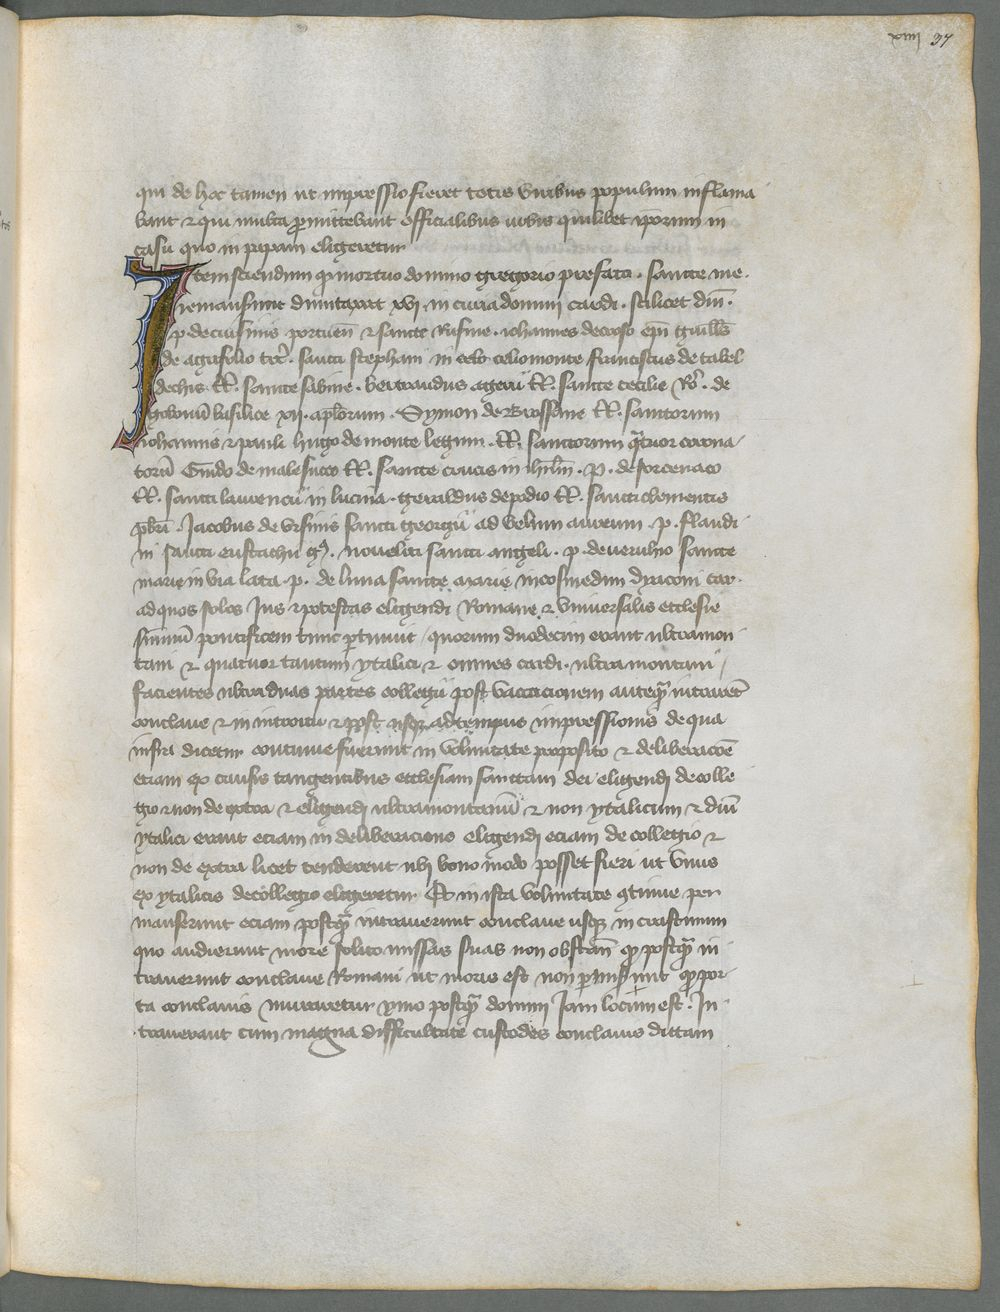 xiiii 37
qui de hoc tamen ut impressio fieret totis viribus populum inflama
bant & qui multa promittebant officialibus urbis quilibet ipsorum in
casu quo in papam eligeretur
Item sciendum q mortuo domino gregorio prefato . sancte me .
remanserunt dumtaxat xvi . in curia domini cardi . scilicet dni .
p de cursinis portuen̄ & sancte Rufine . iohannes de croso epi
de agrifolio tt . sancti stephani in celio monte franciscus de tabel
dechis tt . sancte sabine . bertrandus ageru tt . sancte cecilie Ro . de
gobonis basilice xii . aplorum . Symon de Brossane tt . sanctorum
iohannis & pauli hugo de monte legum . tt . sanctorum q̄tuor corona
torū Guido de malesicco tt . sancte crucis in ihrlm̄ . p . de sorcenaco
tt . sancti laurencii in lucina . Geraldus de podio tt . sancti clementis
pbri . Jacobus de vrsinis sancti Georgii ad velum aureum . p . flandi
ni sancti eustachii G . noueloti sancti angeli . p . de veruhio sancte
marie in via lata . p . de luna sancte marie in cosmedin dyaconi car .
ad quos solos Jus & potestas eligendi Romane & vniversalis ecclesie
summū pontificem tunc ptinuit / quorum duodecim erant ultramon
tani & quatuor tantum ytalici & omnes cardi . ultramontani /
facientes ultra duas partes collegii post vacacionem anteq̄ intrarēt
conclave & in introitu & post usq ad tempus impressionis de qua
infra dicetur continue fuerunt in voluntate proposito & deliberacōe
etiam ex causis tangentibus ecclesiam sanctam dei eligendi de colle
gio & non de extra & eligendi ultramontanū & non ytalicum & dni
ytalici erant eciam in deliberacione eligendi eciam de collegio &
non de extra licet tenderent ubi bono modo posset fieri ut vnus
ex ytalicis de collegio eligeretur Et in ista voluntate 9tinue per
manserunt eciam postq̄ intraverunt conclave usq in crastinum
quo audierunt more solito missas suas non obstan̄ q postq̄ in
traverunt conclave Romani ut moris est non pmiserunt q por
ta conclavis muraretur ymo postq̄ domini Jam locum est . In
traverant cum magna difficultate custodes conclavis dictam